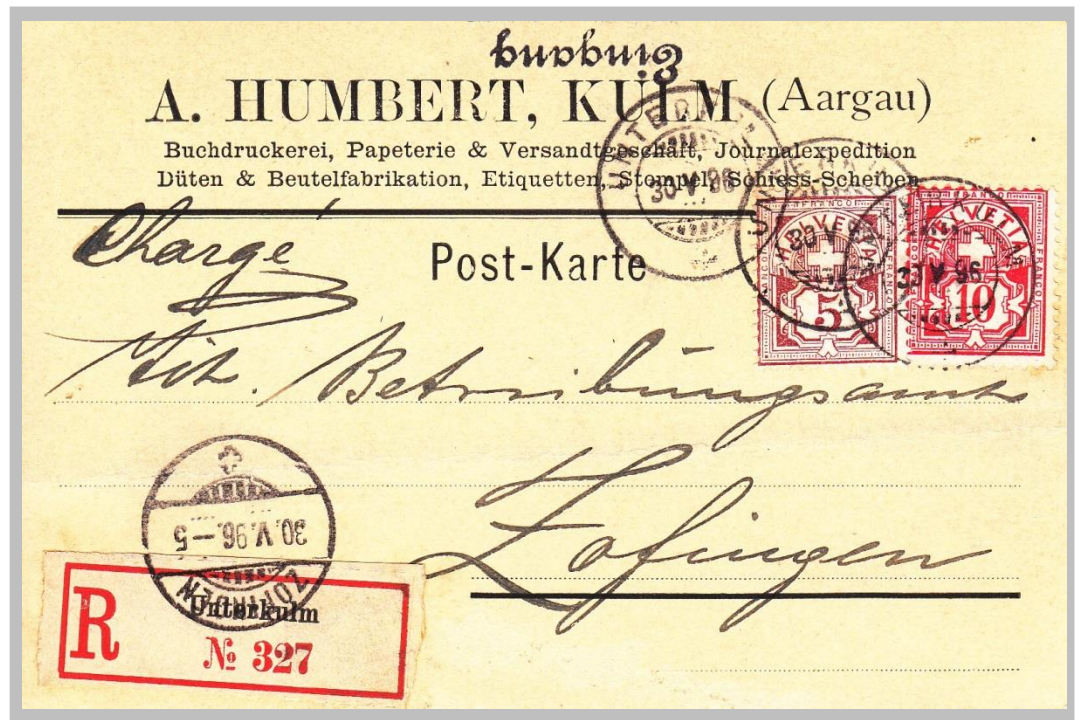 Eingang
A. HUMBERT, KULM (Aargau)
Buchdruckerei, Papeterie & Versandtgeschäft, Journalexpedition
Düten & Beutelfabrikation, Etiquetten, Stempel, Schiess-Scheiben
UNTERKULM
30 V 96
Chargé
Post-Karte
FRANCO
HELVETIA
5
FRANCO
HELVETIA
10
30 V 96
Tit. Betreibungsamt
Zofingen
30.V.96.–5
ZOFINGEN
R
Unterkulm
№ 327